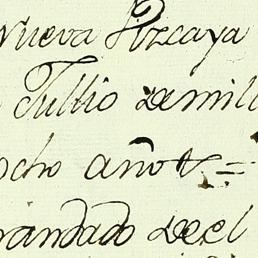 Nueva Vizcaya
Jullio de mill
ocho años =
mandado del